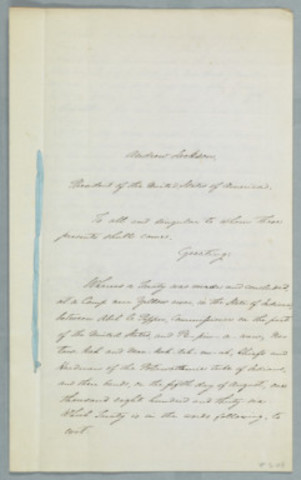 Andrew Jackson,
President of the United States of America,
To all and singular to whom these
presents shall come,
Greeting:
Whereas a Treaty was made and concluded
at a Camp near Yellow river, in the State of Indiana,
between Abel C. Pepper, Commissioner on the part
of the United States, and Pe-pin-a-waw, No-
taw-kah and Mac-kah-tah-mo-ah, Chiefs and
Headmen of the Potawattamie tribe of Indians,
and their bands, on the fifth day of August, one
thousand eight hundred and thirty six
Which Treaty is in the words following, to
wit: